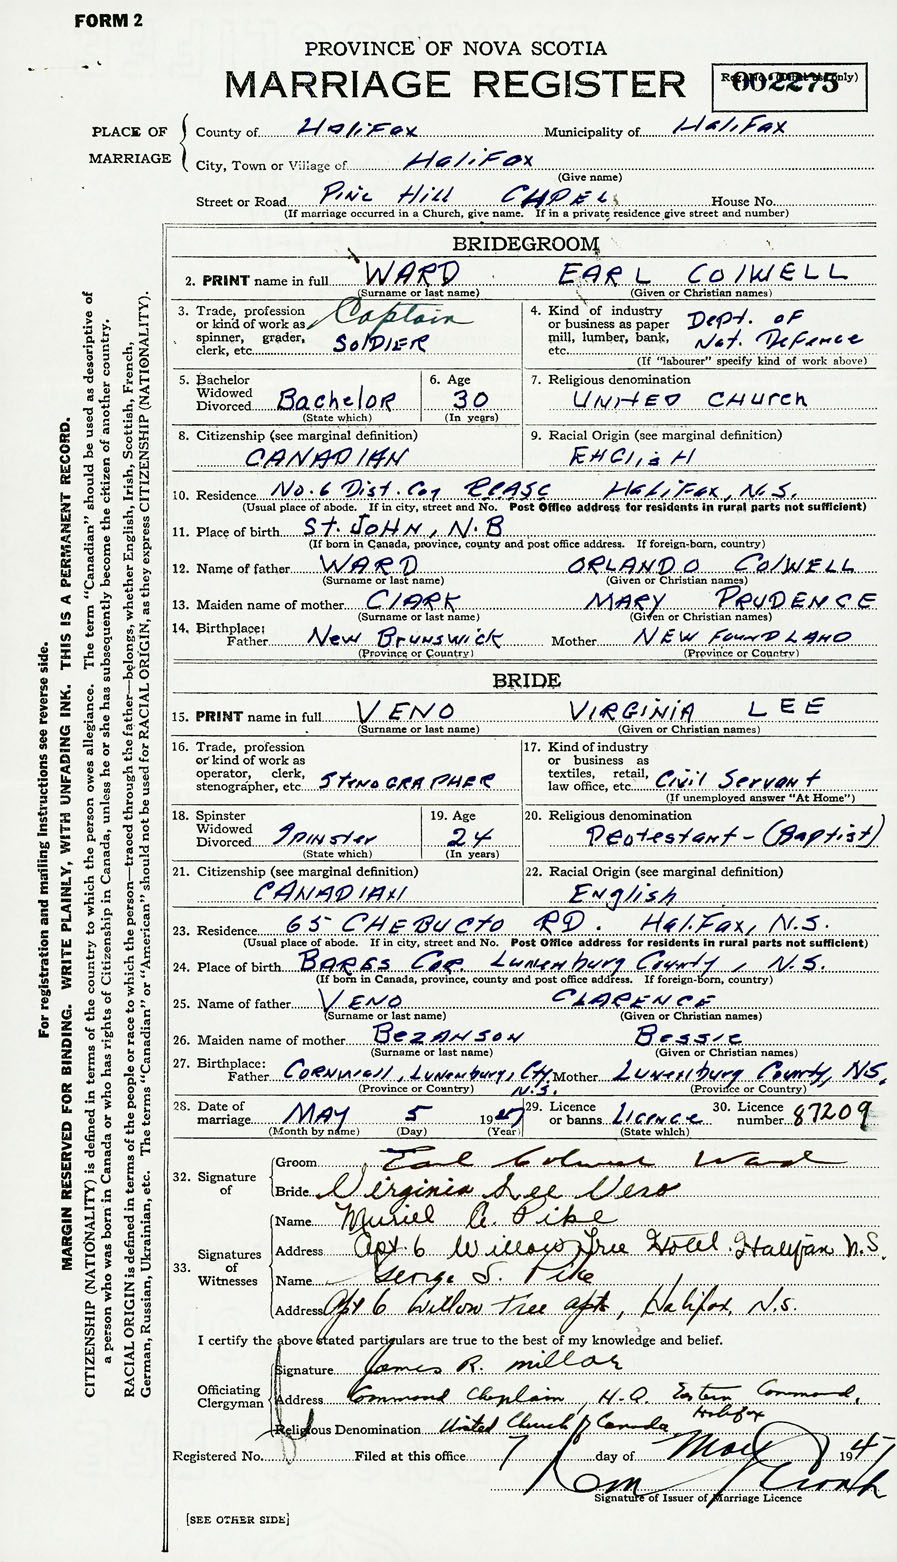 FORM 2
PROVINCE OF NOVA SCOTIA
MARRIAGE REGISTER
Reg. No. (Office use only)
002275
PLACE OF MARRIAGE
County of Halifax Municipality of Halifax
City, Town or Village of Halifax
(Give name)
Street or Road Pine Hill CHAPEL House No.
(If marriage occurred in a Church, give name. If in a private residence give street and number)
BRIDEGROOM
2. PRINT name in full WARD EARL COLWELL
(Surname or last name) (Given or Christian names)
3. Trade, profession or kind of work as spinner, grader, clerk, etc. Captain SOLDIER
4. Kind of industry or business as paper mill, lumber, bank, etc. Dept. of Nat. Defence
(If "labourer" specify kind of work above)
5. Bachelor Widowed Divorced Bachelor
(State which)
6. Age 30
(In years)
7. Religious denomination
UNITED CHURCH
8. Citizenship (see marginal definition)
CANADIAN
9. Racial Origin (see marginal definition)
ENGLISH
10. Residence No. 6 Dist. Coy RCASC Halifax, N.S.
(Usual place of abode. If in city, street and No. Post Office address for residents in rural parts not sufficient)
11. Place of birth ST. JOHN, N.B
(If born in Canada, province, county and post office address. If foreign-born, country)
12. Name of father WARD ORLANDO COLWELL
(Surname or last name) (Given or Christian names)
13. Maiden name of mother CLARK MARY PRUDENCE
(Surname or last name) (Given or Christian names)
14. Birthplace: Father New Brunswick Mother NEWFOUNDLAND
(Province or Country) (Province or Country)
BRIDE
15. PRINT name in full VENO VIRGINIA LEE
(Surname or last name) (Given or Christian names)
16. Trade, profession or kind of work as operator, clerk, stenographer, etc. STENOGRAPHER
17. Kind of industry or business as textiles, retail, law office, etc. Civil Servant
(If unemployed answer "At Home")
18. Spinster Widowed Divorced Spinster
(State which)
19. Age 24
(In years)
20. Religious denomination
Protestant - (Baptist)
21. Citizenship (see marginal definition)
CANADIAN
22. Racial Origin (see marginal definition)
English
23. Residence 65 CHEBUCTO RD. Halifax, N.S.
(Usual place of abode. If in city, street and No. Post Office address for residents in rural parts not sufficient)
24. Place of birth Cor. Lunenburg County, N.S.
(If born in Canada, province, county and post office address. If foreign-born, country)
25. Name of father VENO CLARENCE
(Surname or last name) (Given or Christian names)
26. Maiden name of mother BEZANSON Bessie
(Surname or last name) (Given or Christian names)
27. Birthplace: Father Cornwall, Lunenburg, Cty, N.S. Mother Lunenburg County, N.S.
(Province or Country) (Province or Country)
28. Date of marriage MAY 5 1947
(Month by name) (Day) (Year)
29. Licence or banns Licence
(State which)
30. Licence number 87209
32. Signature of
Groom Earl Colwell Ward
Bride Virginia Lee Veno
33. Signatures of Witnesses
Name Muriel A. Pike
Address Apt. 6 Willow Tree Hotel Halifax N.S.
Name George S. Pike
Address Apt 6 Willow Tree apts, Halifax, N.S.
I certify the above stated particulars are true to the best of my knowledge and belief.
Officiating Clergyman
Signature James R. Millar
Address Command Chaplain, H.Q. Eastern Command, Halifax
Religious Denomination United Church of Canada
Registered No. Filed at this office 7 day of May 1947
Signature of Issuer of Marriage Licence
[SEE OTHER SIDE]
For registration and mailing instructions see reverse side.
MARGIN RESERVED FOR BINDING. WRITE PLAINLY, WITH UNFADING INK. THIS IS A PERMANENT RECORD.
CITIZENSHIP (NATIONALITY) is defined in terms of the country to which the person owes allegiance. The term "Canadian" should be used as descriptive of
a person who was born in Canada or who has rights of Citizenship in Canada, unless he or she has subsequently become the citizen of another country.
RACIAL ORIGIN is defined in terms of the people or race to which the person—traced through the father—belongs, whether English, Irish, Scottish, French,
German, Russian, Ukrainian, etc. The terms "Canadian" or "American" should not be used for RACIAL ORIGIN, as they express CITIZENSHIP (NATIONALITY).